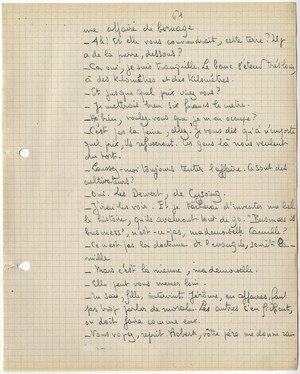 61
une affaire de bornage
- Ah! Si elle vous conviendrait, cette terre? Il y
a de la pierre, dessous?
- Ça oui, je suis tranquille. Le banc s'étend très loin
à des kilomètres et des kilomètres.
- Et jusque quel prix iriez-vous?
- Je mettrais bien six francs le mètre.
- Hé bien, voulez-vous que je m'en occupe?
- C'est pas la peine, allez. Je vous dis qu'à n'importe
quel prix, ils refuseront. Ces gens-là nous veulent
du tort.
- Laissez-moi toujours tenter l'affaire. Ce sont des
cultivateurs?
- Oui. Les Dewert, de Cysoing.
- J'irai les voir. Et je
inventer une belle
histoire, qu'ils avaleront tout de go. "Business is
business", n'est-ce-pas, mademoiselle Camille?
- Ce n'est pas la doctrine de l'évangile,
- Mais c'est la mienne, mademoiselle.
- Elle peut vous mener loin.
- Tu sais, fille, intervint Jérôme, en affaires, faut
pas trop parler de morale. Les autres s'en fichent,
on doit faire comme eux.
- Vous voyez, reprit Robert, votre père me donne raison